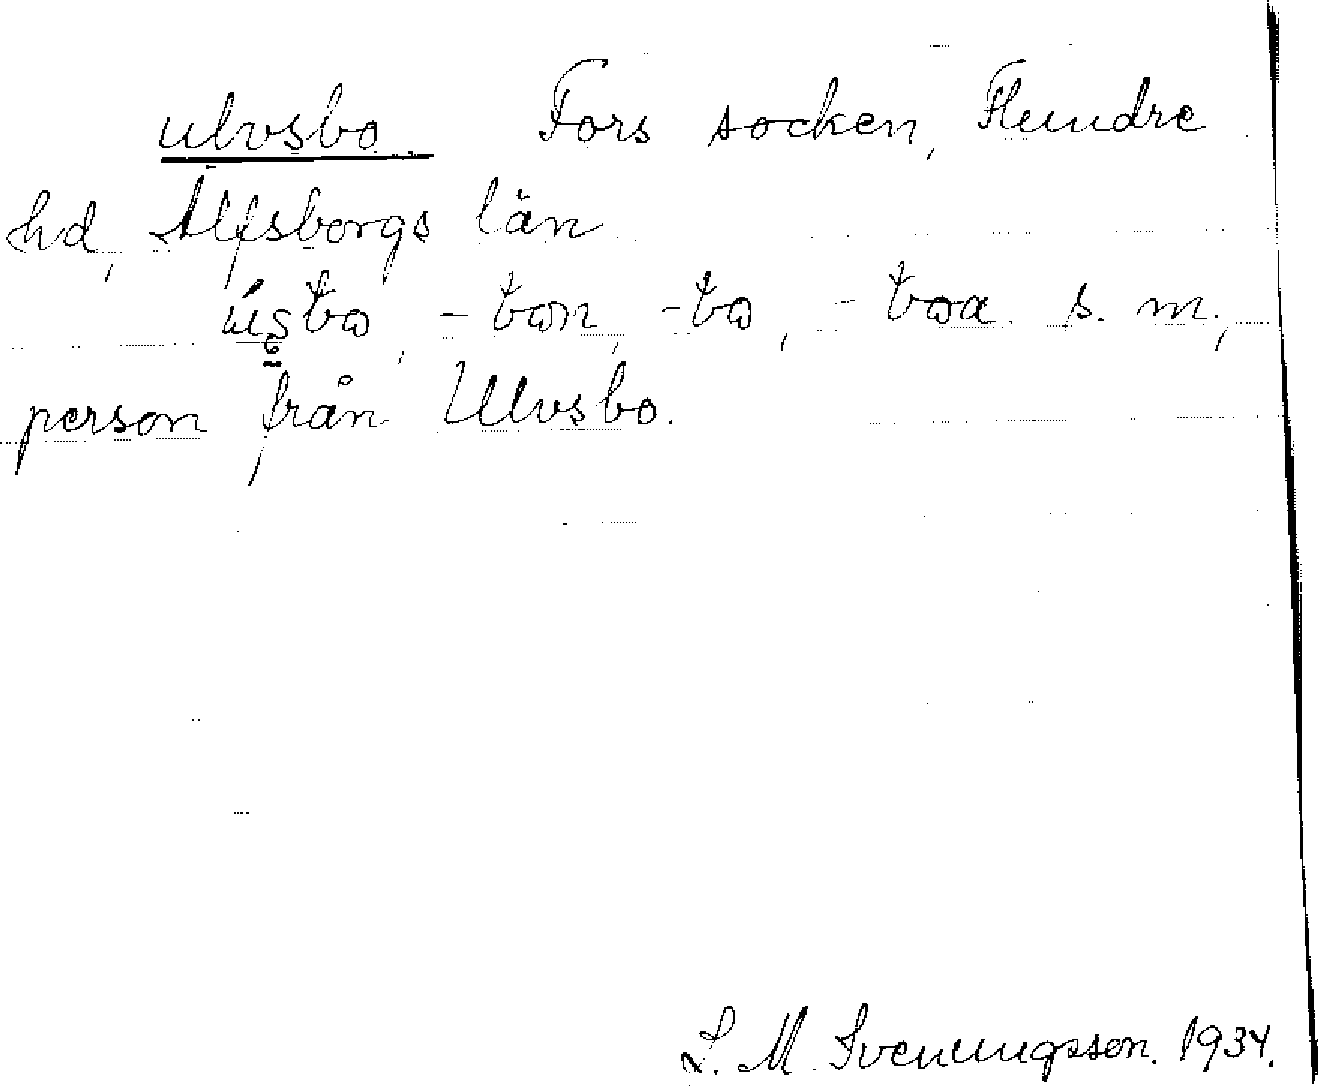 ulvsbo Fors socken, Flundre
hd, Älfsborgs län
-bon, -bo, -boa s. m.,
person från Ulvsbo.
S. M. Svenungsson. 1934.